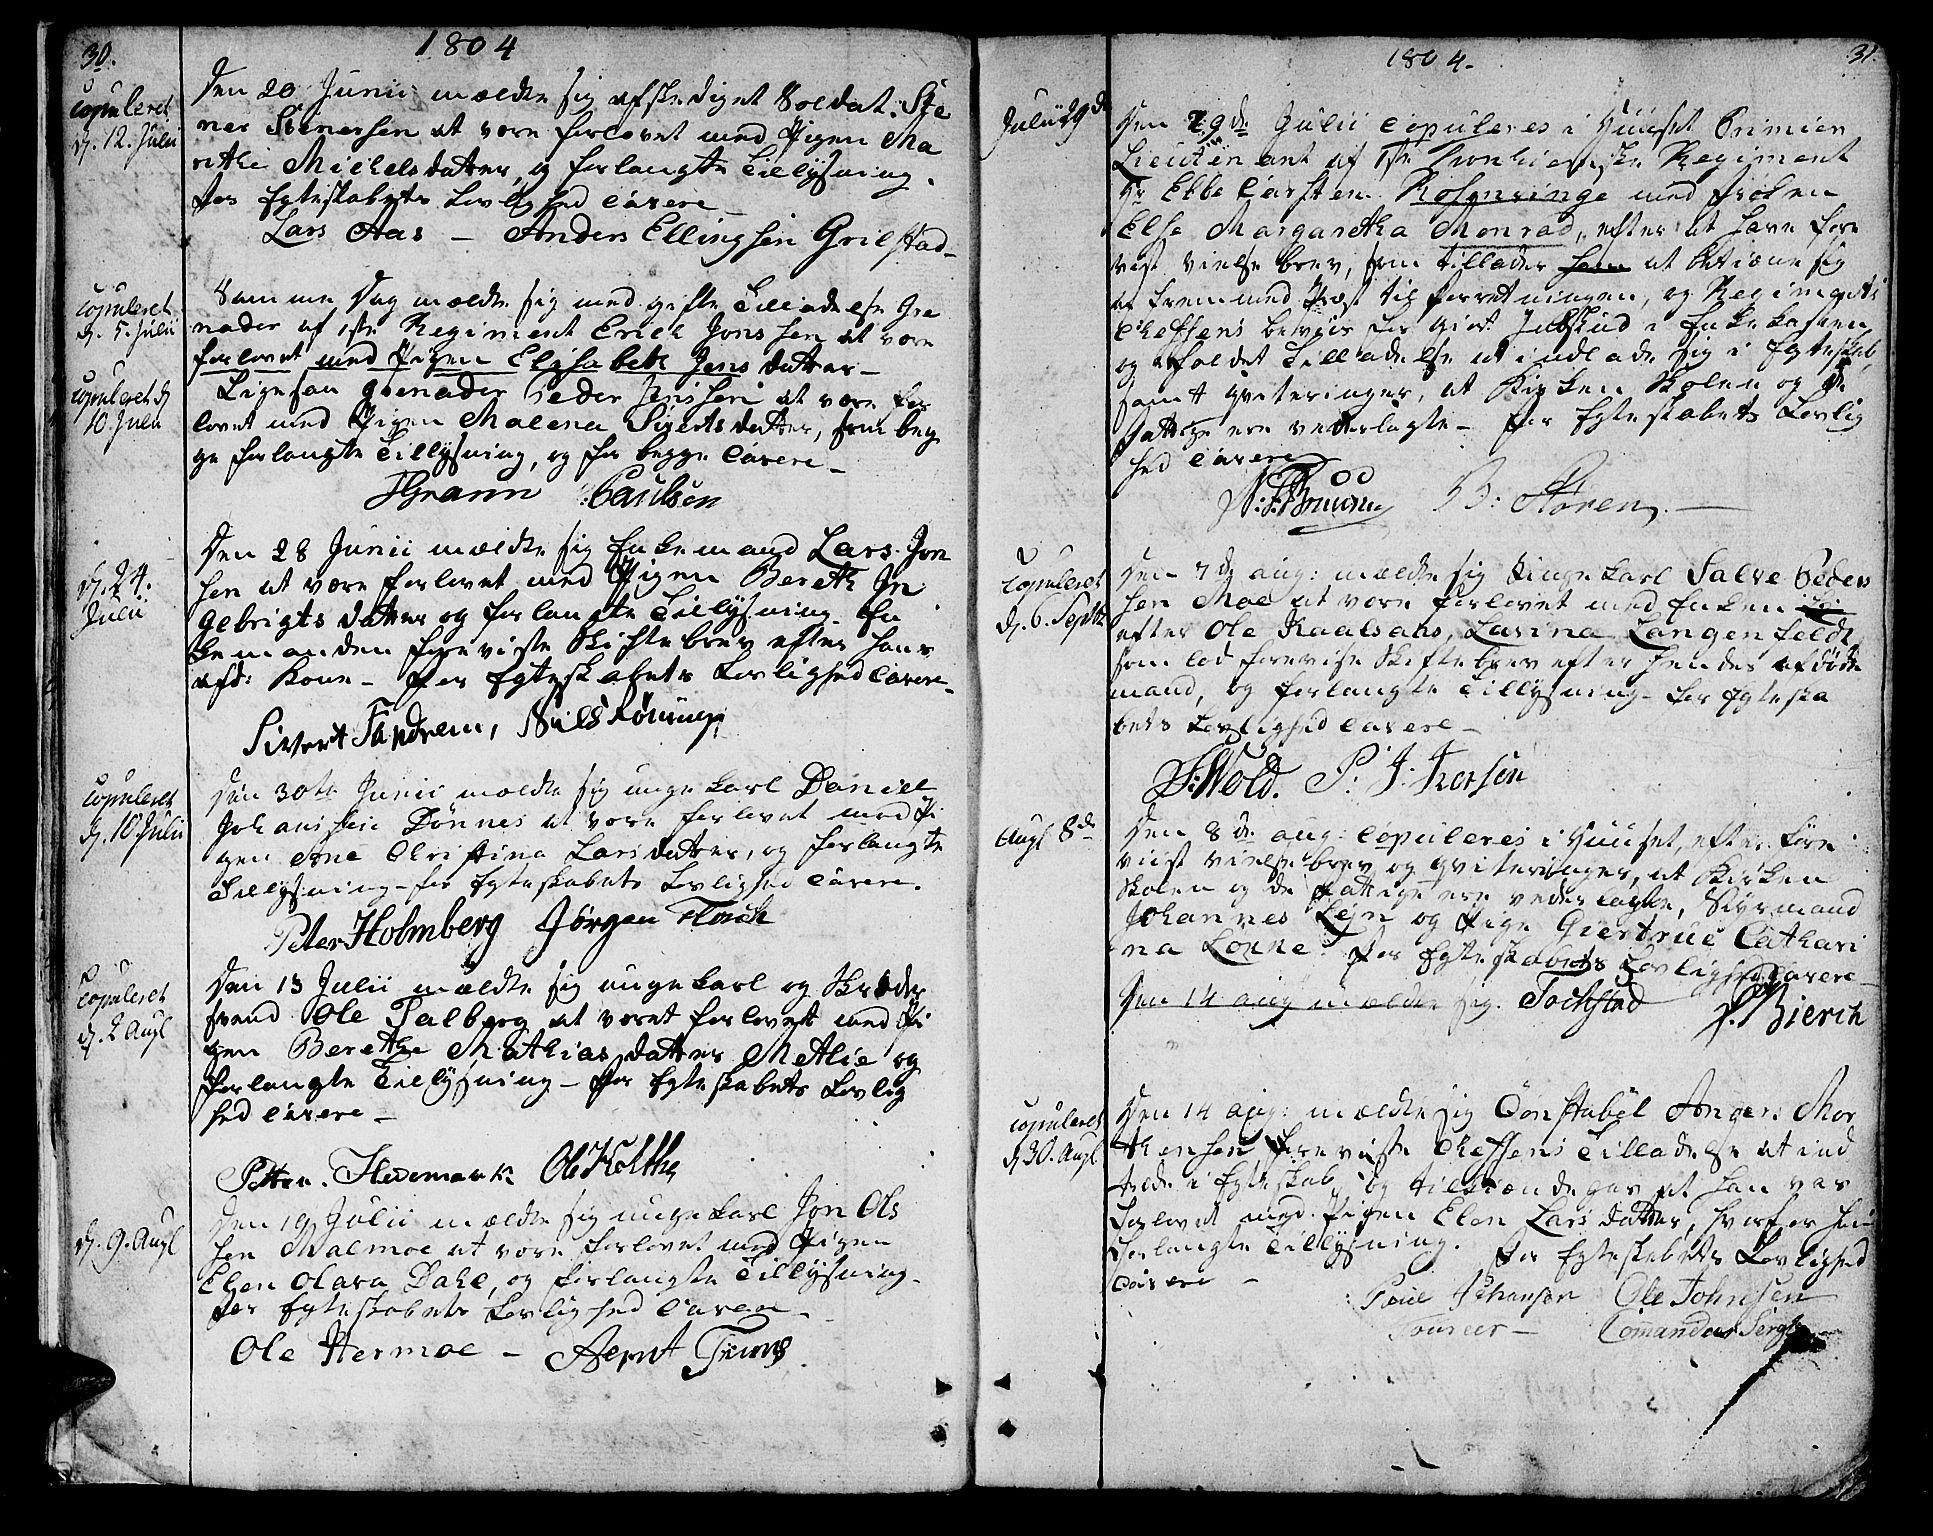 30.
1804
Copuleret
d. 12. Julii
Den 20 Junii mældte sig afskediget Soldat Ste
ner Stenersen at være forlovet med Pigen Ma
rithe Michelsdatter, og forlangte Tillysning.
For Egteskabets Lovlighed cavere
Lars Aas – Anders Ellingsen Grilstad
Copuleret
d. 5. Julii
Samme Dag mældte sig med Tilladelse Gre
nader af 1ste Regiment Erich Jonssen at være
forlovet med Pigen Elisabeth Jens datter –
Copuleret d
10 Julii
Ligesaa Grenader Peder Jenssen at være for
lovet med Pigen Malena Sivertsdatter, som beg
ge forlangte Tillysning, og for begge cavere –
HGramm Paulsen
d. 24.
Julii
Den 28 Junii mældte sig Enkemand Lars Jon
sen at være forlovet med Pigen Bereth In
gebrigts datter og forlangte Tillysning. En
kemanden foreviste Skiftebrev efter hans
afd: Kone – For Egteskabets Lovlighed cavere –
Sivert Fandrem, Nils Rønning
Copuleret
d. 10 Julii
Den 30te Junii mældte sig ungekarl Daniel
Johanssen Dønnes at være forlovet med Pi
gen Ane Christina Larsdatter, og forlangte
Tillysning – for Egteskabets Lovlighed cavere.
Peter Holmberg Jørgen Floch
Copuleret
d. 2 Augl
Den 13 Julii mældte sig ungekarl og Skræder
svend Ole Talberg at været forlovet med Pi
gen Berethe Mathias datter Metlie og
forlangte Tillysning – For Egteskabets Lovlig
hed cavere –
Petter Hedemark Ole Kolthe
d. 9. Augl
Den 19 Julii mældte sig ungekarl Jon Ols
sen Malmoe at være forlovet med Pigen
Elen Olava Dahl, og forlangte Tillysning –
For Egteskabets Lovlighed cavere –
Ole Hermoe – Arnt
31
1804.
Julii 29de
Den 29de Julii copuleres i Huuset Premier
Lieutenant af 1ste Tronhiemske Regiment
Hr Ebbe Carsten Rosenvinge med Frøken
Else Margaretha Monrad, efter at have fore
vist vielse brev, som tillader at betiene sig
af fremmed Præst til forretningen, og Regiments
Cheffens beviis for giort Indskud i Enkekassen
og erholdet Tilladelse at indlade sig i Egteskab,
samt qviteringer, at Kirken Skolen og de
Fattige ere vederlagte – For Egteskabets Lovlig
hed cavere
B: Støren
Copuleret
d. 6. Septbr
Den 7de aug: mældte sig Ungekarl Salve Peder
sen Moe at være forlovet med Enken
efter Ole Kaalsaas, Larina Langenfeldt
som lod forevise Skiftebrev efter hendes afdøde
mand, og forlangte Tillysning – For Egteska
bets Lovlighed cavere –
S: Wold. P: J: Thorsen
Augl 8de
Den 8de aug: copuleres i Huuset, efter fore
viist vielse brev og qviteringer, at Kirken
Skolen og de Fattige ere vederlagte, Styrmand
Johannes Lein og Pige Giertrue Cathari
na Lonne. For Egteskabets Lovlighed cavere –
Den 14 aug mældte sig. Tochstad Bierch
Copuleret
d 30. Augl
Den 14 aug: mældte sig Constabel Anders Mor
thensen foreviste Cheffens Tilladelse at ind
træde i Egteskab, og tilkiendegav at han var
forlovet med Pigen Elen Lars datter, hvorfor han
forlangte Tillysning. For Egteskabets Lovlighed
cavere –
Poul Johansen Ole Johnsen
Foureer – Commandeer Sergt